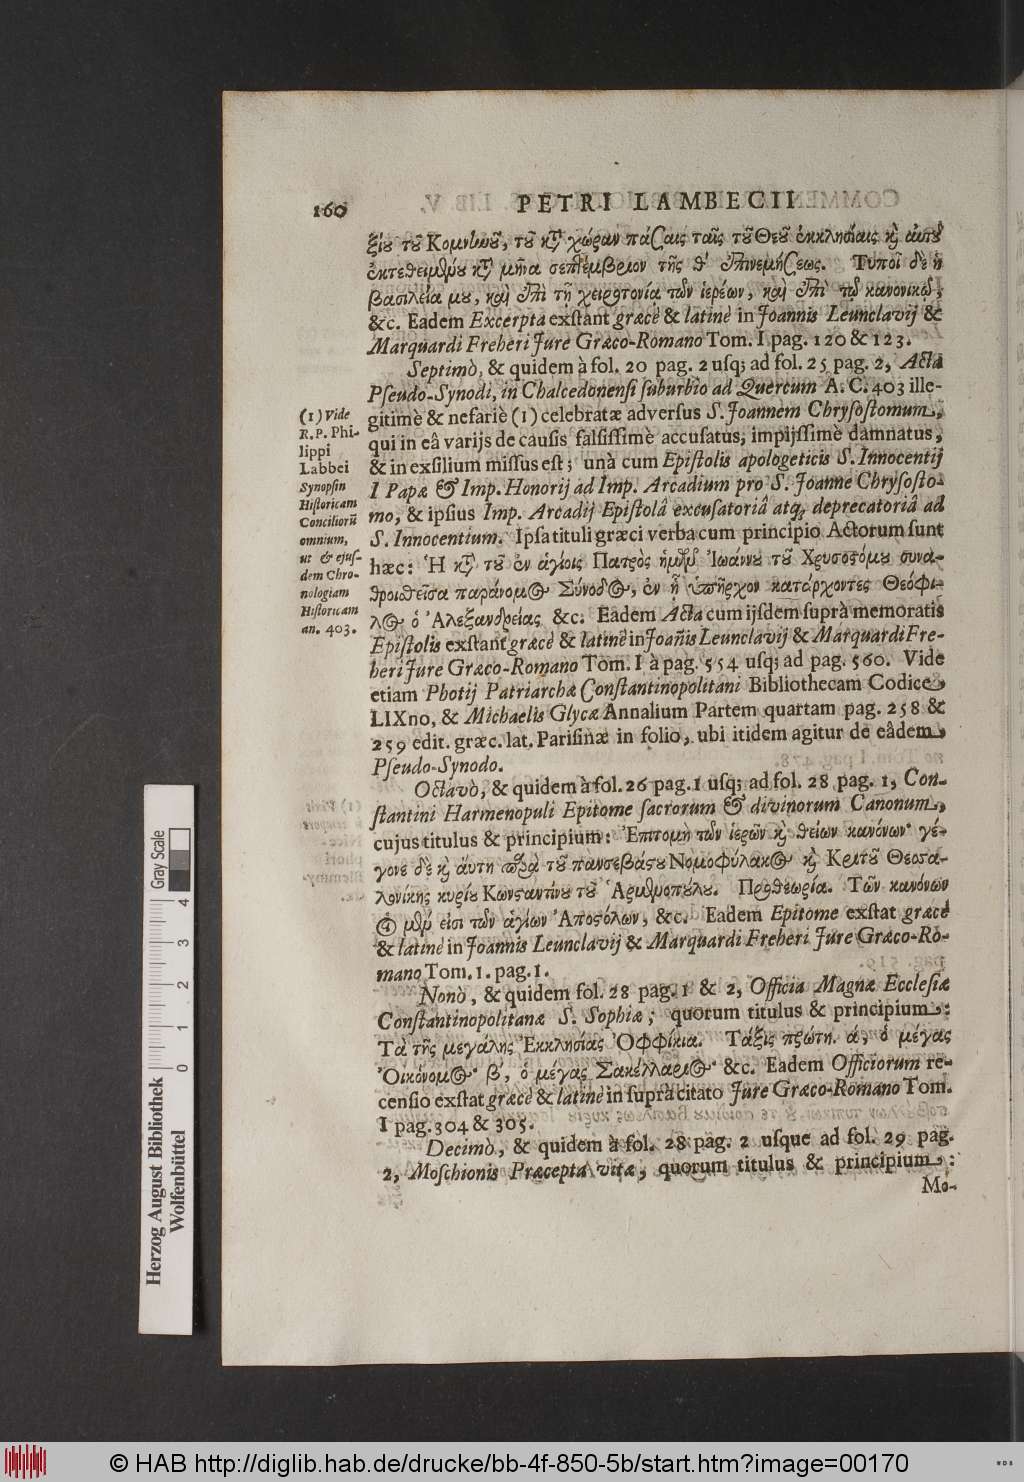 160 PETRI LAMBECII
ξίου τοῦ Κομνηνοῦ, τοῦ κατὰ χώραν πάσαις ταῖς τοῦ Θεοῦ ἐκκλησίαις καὶ αὐτοῦ
ἐκτεθειμένου κατὰ μῆνα σεπτέμβριον τῆς θ' ἐπινεμήσεως. Τυποῖ δὲ ἡ
βασιλεία μου, καὶ ἐπὶ τῇ χειροτονίᾳ τῶν ἱερέων, καὶ ἐπὶ τῷ κανονικῷ,
&c. Eadem Excerpta exſtant græcè & latinè in Joannis Leunclavij &
Marquardi Freheri Jure Græco-Romano Tom. I pag. 120 & 123.
Septimò, & quidem à fol. 20 pag. 2 uſq; ad fol. 25 pag. 2, Acta
Pſeudo-Synodi, in Chalcedonenſi ſuburbio ad Quercum A. C. 403 ille-
gitimè & nefariè (1) celebratæ adverſus S. Joannem Chryſoſtomum,
qui in eâ varijs de cauſis falſiſſimè accuſatus, impijſſimè damnatus,
& in exſilium miſſus eſt; unà cum Epiſtolis apologeticis S. Innocentij
I Papæ & Imp. Honorij ad Imp. Arcadium pro S. Joanne Chryſoſto-
mo, & ipſius Imp. Arcadij Epiſtolâ excuſatoriâ atq; deprecatoriâ ad
S. Innocentium. Ipſa tituli græci verba cum principio Actorum ſunt
hæc: Ἡ κατὰ τοῦ ἐν ἁγίοις Πατρὸς ἡμῶν Ἰωάννου τοῦ Χρυσοστόμου συνα-
θροισθεῖσα παράνομος Σύνοδος, ἐν ᾗ ὑπῆρχον κατάρχοντες Θεόφι-
λος ὁ Ἀλεξανδρείας &c. Eadem Acta cum ijſdem ſuprà memoratis
Epiſtolis exſtant græcè & latinè in Joañis Leunclavij & Marquardi Fre-
heri Jure Græco-Romano Tom. I à pag. 554 uſq; ad pag. 560. Vide
etiam Photij Patriarchæ Conſtantinopolitani Bibliothecam Codice
LIXno, & Michaelis Glycæ Annalium Partem quartam pag. 258 &
259 edit. græc. lat. Pariſinæ in folio, ubi itidem agitur de eâdem
Pſeudo-Synodo.
(1) Vide
R. P. Phi-
lippi
Labbei
Synopſin
Hiſtoricam
Conciliorũ
omnium,
ut & ejuſ-
dem Chro-
nologiam
Hiſtoricam
an. 403.
Octavò, & quidem à fol. 26 pag. 1 uſq; ad fol. 28 pag. 1, Con-
ſtantini Harmenopuli Epitome ſacrorum & divinorum Canonum,
cujus titulus & principium: Ἐπιτομὴ τῶν ἱερῶν καὶ θείων κανόνων· γέ-
γονε δὲ καὶ αὕτη παρὰ τοῦ πανσεβάστου Νομοφύλακος καὶ Κριτοῦ Θεσσα-
λονίκης κυρίου Κωνσταντίνου τοῦ Ἁρμενοπούλου. Προθεωρία. Τῶν κανόνων
οἱ μέν εἰσι τῶν ἁγίων Ἀποστόλων, &c. Eadem Epitome exſtat græcè
& latinè in Joannis Leunclavij & Marquardi Freheri Jure Græco-Ro-
mano Tom. 1. pag. 1.
Nonò, & quidem fol. 28 pag. 1 & 2, Officia Magnæ Eccleſiæ
Conſtantinopolitanæ S. Sophiæ; quorum titulus & principium:
Τὰ τῆς μεγάλης Ἐκκλησίας Ὀφφίκια. Τάξις πρώτη. ά, ὁ μέγας
Οἰκόνομος· β', ὁ μέγας Σακελλάριος· &c. Eadem Officiorum re-
cenſio exſtat græcè & latinè in ſuprà citato Jure Græco-Romano Tom.
I pag. 304 & 305.
Decimò, & quidem à fol. 28 pag. 2 uſque ad fol. 29 pag.
2, Moſchionis Præcepta vitæ, quorum titulus & principium:
Mo-
Herzog August Bibliothek
Wolfenbüttel
0 1 2 3 4
Gray Scale
© HAB http://diglib.hab.de/drucke/bb-4f-850-5b/start.htm?image=00170